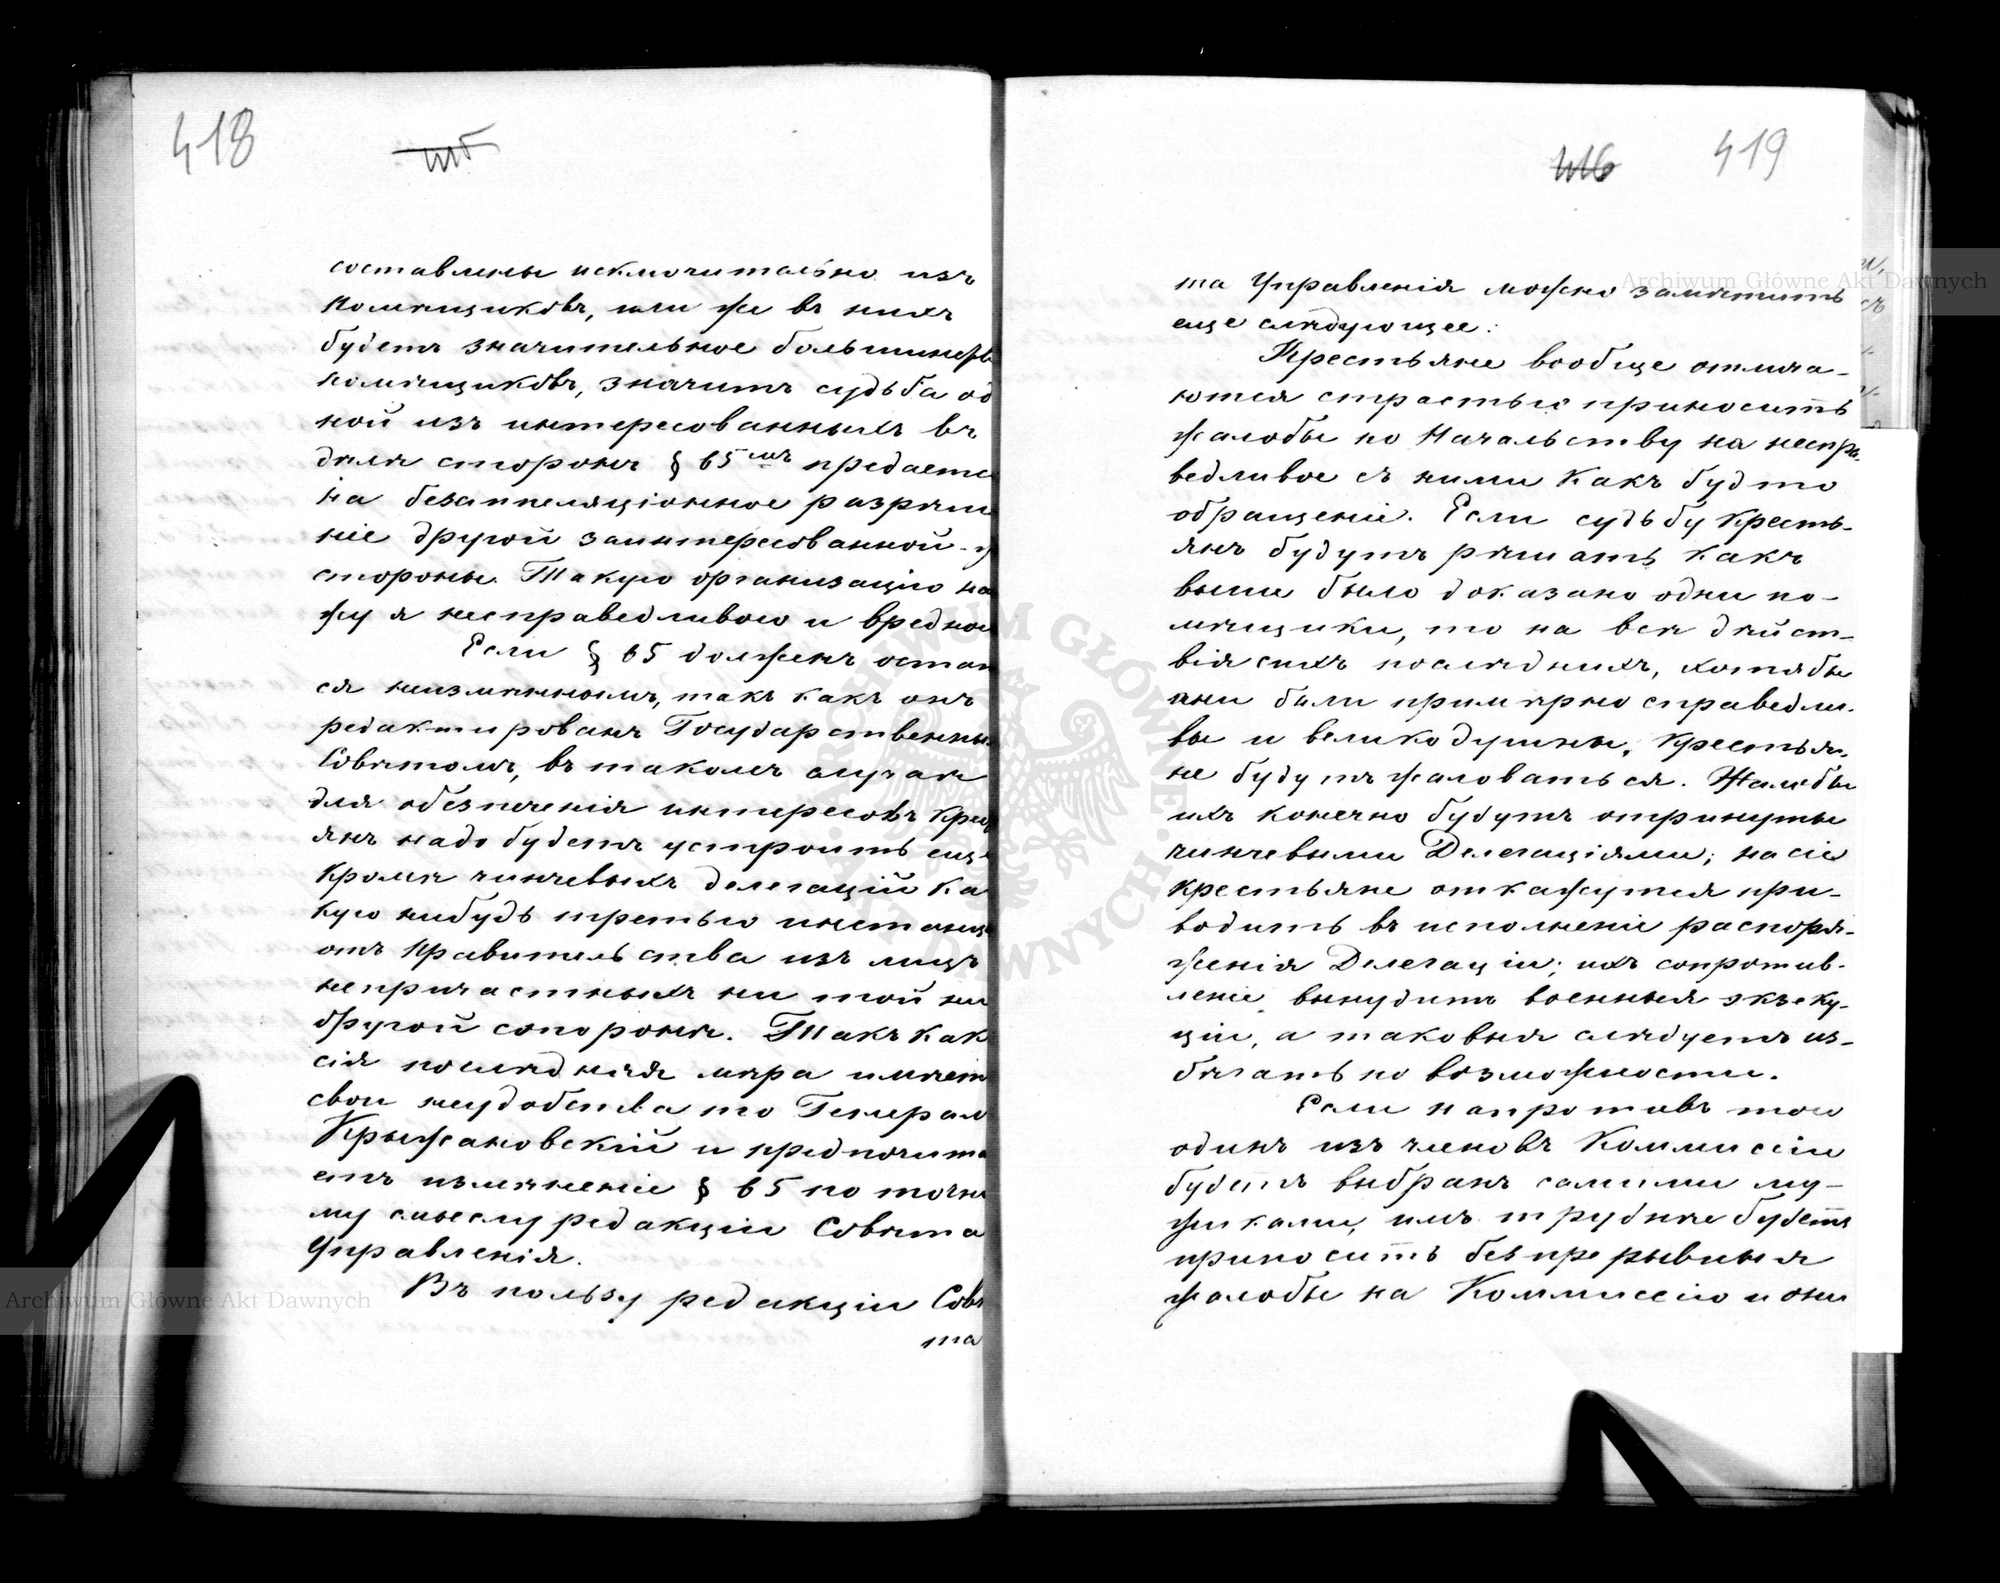 418
составлены исключительно изъ
помѣщиковъ, или же въ нихъ
будетъ значительное большинств
помѣщиковъ, значитъ судьба од
ной изъ интересованныхъ въ
дѣлѣ сторонъ § 65мъ предаетс
на безаппеляціонное разрѣше
ніе другой заинтересованной
стороны. Такую организацію на
жу я несправедливою и вредною
Если § 65 долженъ остат
ся неизмѣннымъ, такъ какъ онъ
редактированъ Государственны
Совѣтомъ, въ такомъ случаѣ
для обезпеченія интересовъ крес
янъ надо будетъ устроить еще
кромѣ чиншевыхъ делегацій ка
кую нибудь третью инстанц
отъ правительства изъ лицъ
непричастныхъ ни той ни
другой сопоронѣ. Такъ как
сія послѣдняя мѣра имѣет
свои неудобства то Генерал
Крыжановскій и предпочита
етъ измѣненіе § 65 по точно
му смыслу редакціи Совѣта
Управленія.
Въ пользу редакціи Совѣ
та
416 419
та Управленія можно замѣтить
еще слѣдующее:
Крестьяне вообще отлича-
ются страстью приносить
жалобы по Начальству на неспра
ведливое съ ними какъ будто
обращеніе. Если судьбу кресть-
янъ будутъ рѣшать какъ
выше было доказано одни по-
мѣщики, то на всѣ дѣйст-
вія сихъ послѣднихъ, хотябы
они были примѣрно справедли-
вы и великодушны, крестья-
не будутъ жаловаться. Жалобы
ихъ конечно будутъ отринуты
чиншевыми Делегаціями; на сіе
крестьяне откажутся при-
водить въ исполненіе распоря-
женія Делегаціи; ихъ сопротив-
леніе вынудитъ военныя экзеку-
ціи, а таковыя слѣдуетъ из-
бѣгать по возможности.
Если напротивъ того
одинъ изъ членовъ Коммиссіи
будетъ выбранъ самими му-
жиками, имъ труднѣе будетъ
приносить безпрерывныя
жалобы на Коммиссію и они
Archiwum Główne Akt Dawnych
Archiwum Główne Akt Dawnych
ARCHIWUM GŁÓWNE AKT DAWNYCH